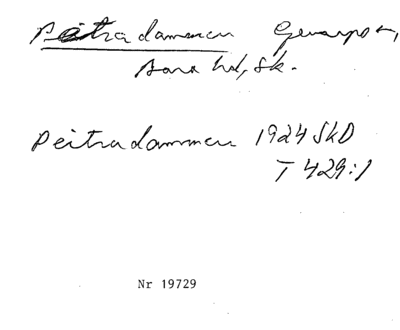 Peitradammen Genarps sn,
Bara hd, Sk.
Peitradammen 1924 SkD
T 429:1
Nr 19729